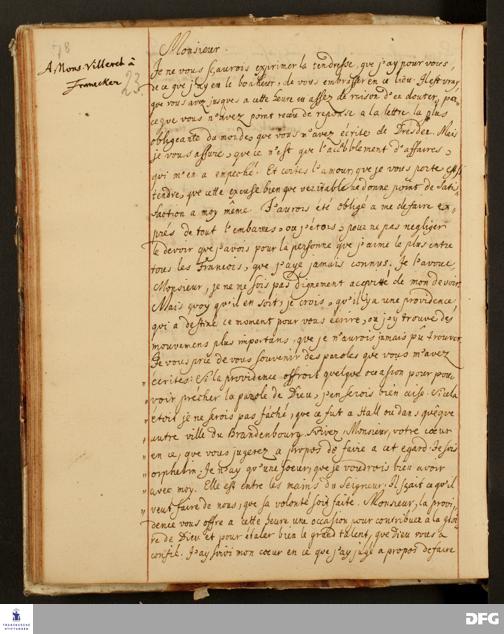 78
A Mons. Villeret à
Franeker
23
Monsieur.
Je ne vous sçaurois exprimer la tendresse, que j'ay pour vous,
de ce que j'ay eu le bonheur, de vous embrasser en ce lieu. Il est vray,
que vous avez jusques a cette heure eu assez de raison d'en douter, par
ce que vous n'avez point recu de reponse a la lettre la plus
obligeante du monde, que vous m'avez ecrite de Dresde. Mais
je vous assure, que ce n'est que l'accablement d'affaires,
qui m'en a empeché. Et certes l'amour, que je vous porte est si
tendre, que cette excuse bien que veritable ne donne point de satis-
faction a moy même. J'aurois été obligé a me defaire ex-
prés de tout l'embaras, ou j'étois, pour ne pas negliger
le devoir que j'avois pour la personne que j'aime le plus entre
tous les François, que j'aye jamais connus. Je l'avoue,
Monsieur, je ne me suis pas dignement acquitté de mon devoir.
Mais quoy qu'il en soit, je crois, qu'il y a une providence,
qui a destiné ce moment pour vous écrire, ou j'y trouve des
mouvemens plus importans, que je n'aurois jamais pu trouver.
Je vous prie de vous souvenir des paroles que vous m'avez
ecrites: Si la providence offroit quelque occasion pour pou-
voir prêcher la parole de Dieu, j'en serois bien aise. Si cela
étoit je ne serois pas faché, que ce fut a Hall ou dans quelque
autre ville du Brandenbourg. Suivez, Monsieur, votre cœur
en ce, que vous jugerez a propos de faire a cet egard. Je suis
orphelin. Je n'ay qu'une soeur, que je voudrois bien avoir
avec moy. Elle est entre les mains du Seigneur. Il sçait ce qu'il
veut faire de nous, que sa volonté soit faite. Monsieur, la provi-
dence vous offre a cette heure une occasion pour contribuer a la gloi-
re de Dieu et pour étaler bien le grand talent, que Dieu vous a
confié. J'ay suivi mon cœur en ce que j'ay jugé a propos de faire
FRANCKESCHE STIFTUNGEN
DFG